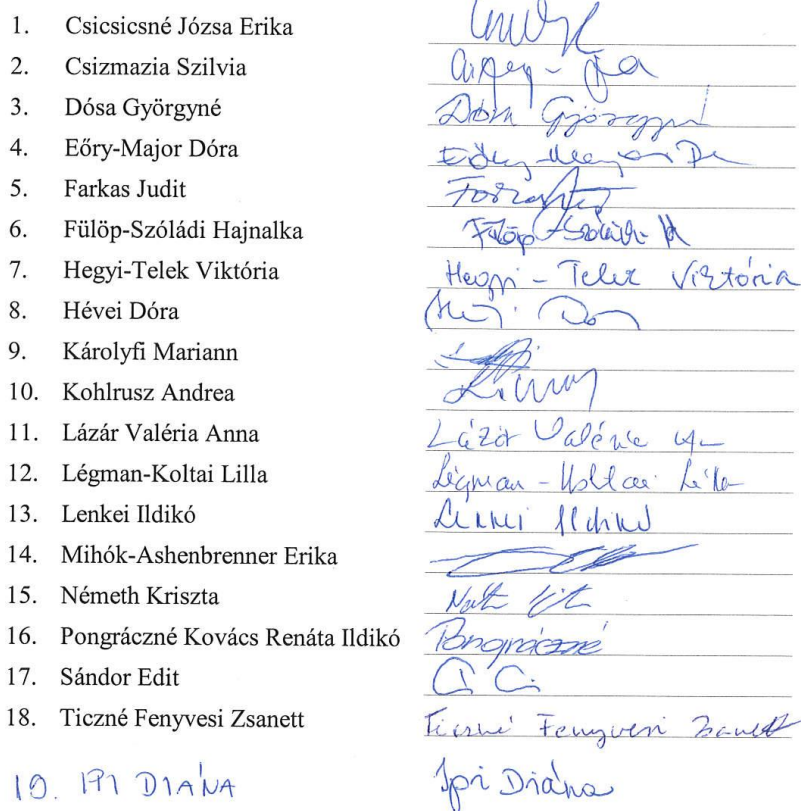 1. Csicsicsné Józsa Erika
2. Csizmazia Szilvia
3. Dósa Györgyné Dósa Györgyné
4. Eőry-Major Dóra
5. Farkas Judit
6. Fülöp-Szóládi Hajnalka Fülöp-Szóládi H
7. Hegyi-Telek Viktória Hegyi-Telek Viktória
8. Hévei Dóra
9. Károlyfi Mariann
10. Kohlrusz Andrea
11. Lázár Valéria Anna Lázár Valéria
12. Légman-Koltai Lilla Légman-Koltai Lilla
13. Lenkei Ildikó Lenkei Ildikó
14. Mihók-Ashenbrenner Erika
15. Németh Kriszta
16. Pongráczné Kovács Renáta Ildikó Pongráczné
17. Sándor Edit
18. Ticzné Fenyvesi Zsanett Ticzné Fenyvesi Zsanett
19. IPI DIÁNA Ipi Diána